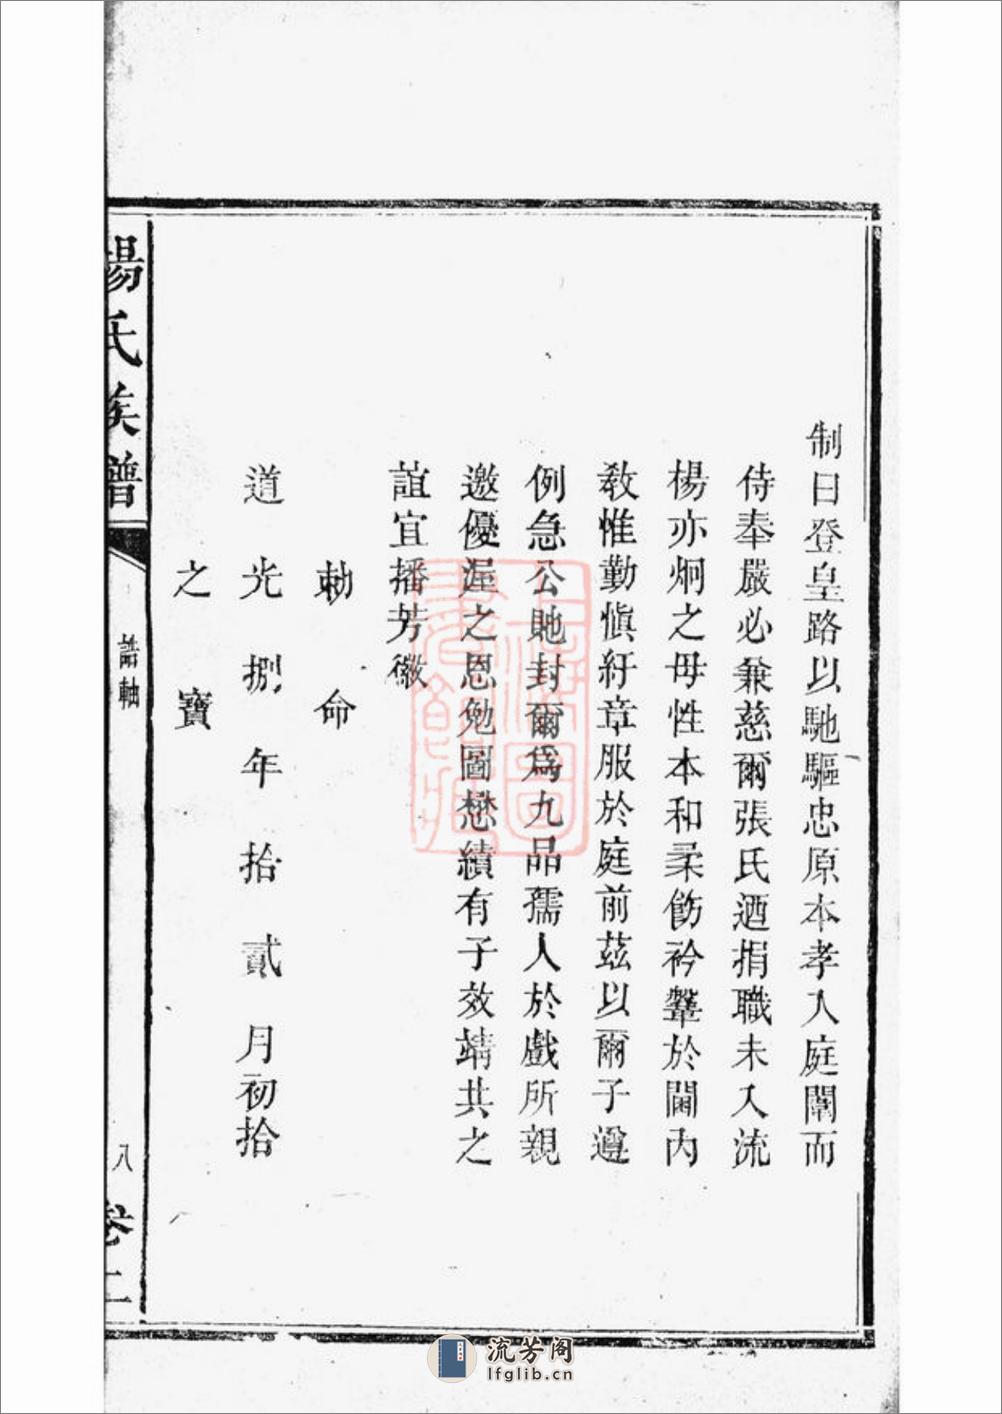 制曰登皇路以馳驅忠原本孝入庭闈而
侍奉嚴必兼慈爾張氏迺捐職未入流
楊亦炯之母性本和柔飭衿鞶於閫內
敎惟勤愼紆章服於庭前茲以爾子遵
例急公貤封爾爲九品孺人於戲所親
邀優渥之恩勉圖懋績有子效靖共之
誼宜播芳徽
勅命
道光捌年拾貳月初拾
之寶
楊氏族譜
誥軸
八
卷二
流芳阁
lfglib.cn